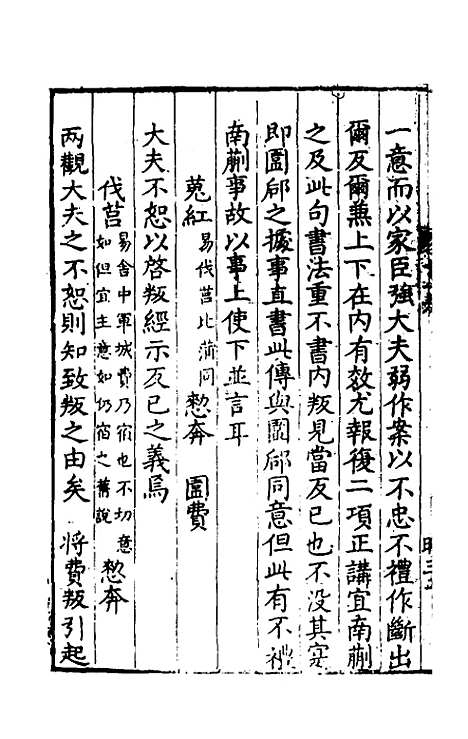 一意而以家臣強大夫弱作案以不忠不禮作斷出
爾反爾無上下在内有效尤報復二項正講宜南蒯
之及此句書法重不書内叛見當反已也不没其寔
即圍郈之據事直書此傳與圍郈同意但此有不禮
南蒯事故以事上使下並言耳
蒐紅 易伐莒比蒲同 憖奔 圍費
大夫不恕以啓叛經示反已之義焉
伐莒 易舍中軍城費乃宿也不切意 如但宜主意如仍宿之舊說 憖奔
两觀大夫之不恕則知致叛之由矣 将費叛引起